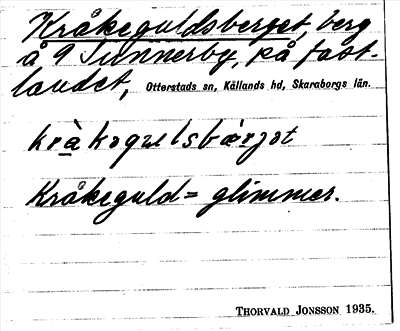 Kråkeguldsberget, berg
å 9 Sunnerby, på fast-
landet, Otterstads sn, Kållands hd, Skaraborgs län.
Kråkeguld = glimmer.
THORVALD JONSSON 1935.